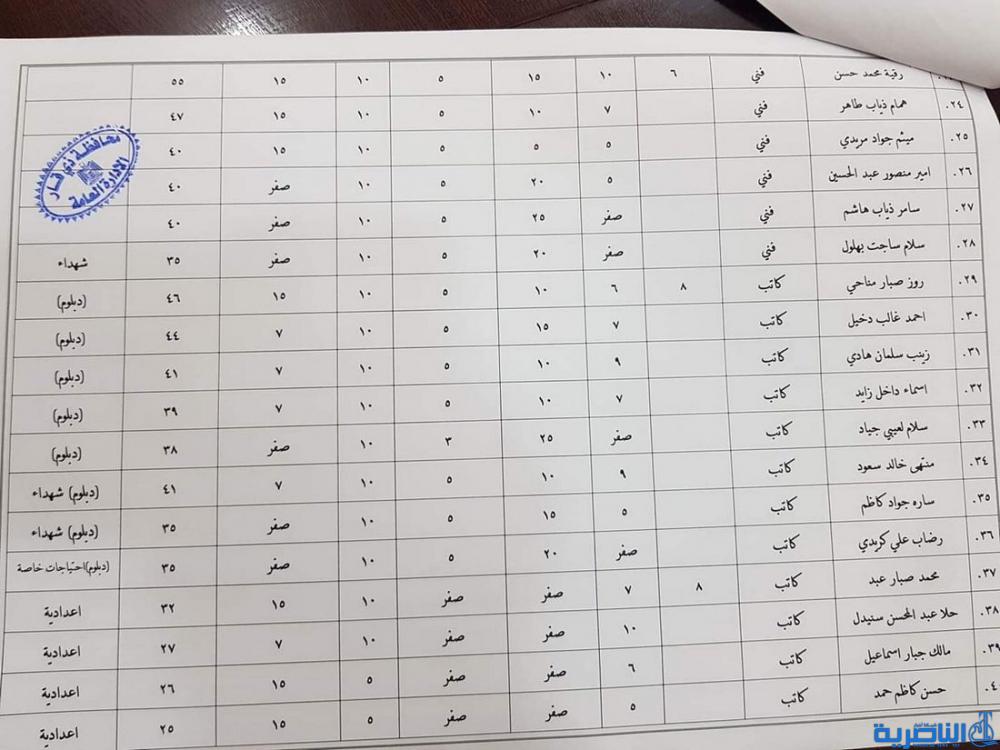 رقية محمد حسن فني ٦ ١٠ ١٥ ٥ ١٠ ١٥ ٥٥
٢٤. همام ذياب طاهر فني ٧ ١٠ ٥ ١٠ ١٥ ٤٧
٢٥. ميثم جواد مريدي فني ٥ ٥ ٥ ١٠ ١٥ ٤٠
٢٦. امير منصور عبد الحسين فني ٥ ٢٠ ٥ ١٠ صفر ٤٠
٢٧. سامر ذياب هاشم فني صفر ٢٥ ٥ ١٠ صفر ٤٠
٢٨. سلام ساجت بهلول فني صفر ٢٠ ٥ ١٠ صفر ٣٥ شهداء
٢٩. روز صبار مناحي كاتب ٨ ٦ ١٠ ٥ ١٠ ١٥ ٤٦ (دبلوم)
٣٠. احمد غالب دخيل كاتب ٧ ١٥ ٥ ١٠ ٧ ٤٤ (دبلوم)
٣١. زينب سلمان هادي كاتب ٩ ١٠ ٥ ١٠ ٧ ٤١ (دبلوم)
٣٢. اسماء داخل زايد كاتب ٧ ١٠ ٥ ١٠ ٧ ٣٩ (دبلوم)
٣٣. سلام لعيبي جياد كاتب صفر ٢٥ ٣ ١٠ صفر ٣٨ (دبلوم)
٣٤. منتهى خالد سعود كاتب ٩ ١٠ ٥ ١٠ ٧ ٤١ (دبلوم) شهداء
٣٥. ساره جواد كاظم كاتب ٥ ١٥ ٥ ١٠ صفر ٣٥ (دبلوم) شهداء
٣٦. رضاب علي كريدي كاتب صفر ٢٠ ٥ ١٠ صفر ٣٥ (دبلوم)احتياجات خاصة
٣٧. محمد صبار عبد كاتب ٨ ٧ صفر صفر ١٠ ١٥ ٣٢ اعدادية
٣٨. حلا عبد المحسن سنيدل كاتب ١٠ صفر صفر ١٠ ٧ ٢٧ اعدادية
٣٩. مالك جبار اسماعيل كاتب ٦ صفر صفر ٥ ١٥ ٢٦ اعدادية
٤٠. حسن كاظم حمد كاتب ٥ صفر صفر ٥ ١٥ ٢٥ اعدادية
محافظة ذي قار
الادارة العامة
الناصرية